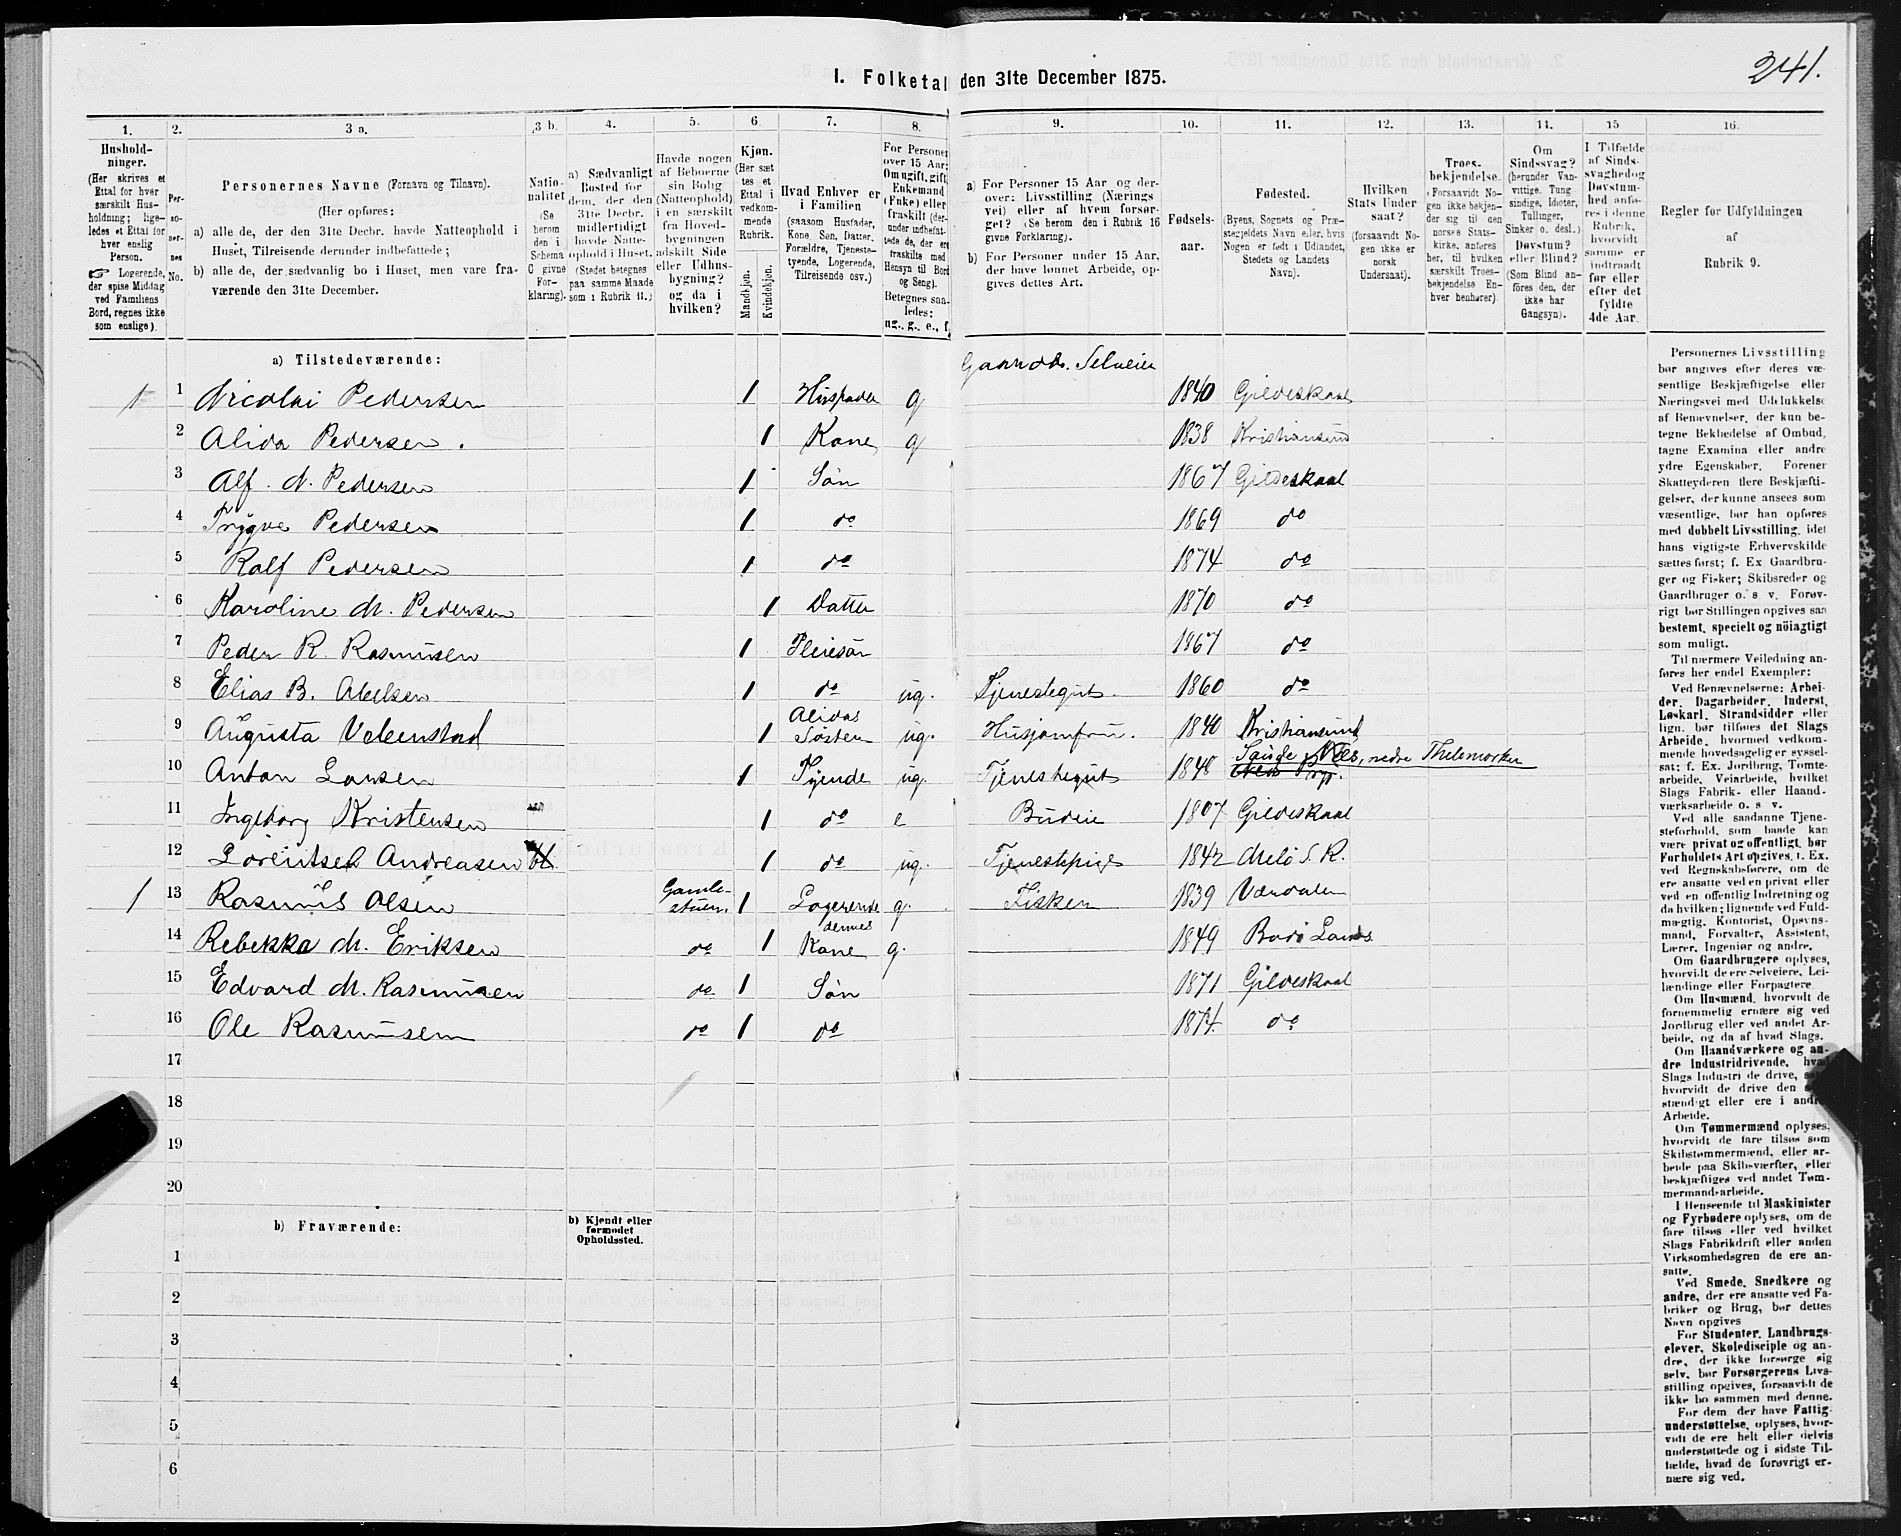 241.
I. Folketal den 31te December 1875.
1. 2. 3 a. 3 b. 4. 5. 6. 7. 8. 9. 10. 11. 12. 13. 14. 15 16.
Hushold-
ninger.
(Her skrives et
Ettal for hver
særskilt Hus-
holdning; lige-
ledes et Ettal for
hver enslig
Person.
☞ Logerende,
der spise Middag
ved Familiens
Bord, regnes ikke
som enslige).
Per-
so-
ner-
nes
No.
Personernes Navne (Fornavn og Tilnavn).
(Her opføres:
a) alle de, der den 31te Decbr. havde Natteophold i
Huset, Tilreisende derunder indbefattede;
b) alle de, der sædvanlig bo i Huset, men vare fra-
værende den 31te December.
Natio-
nalitet
(Se
herom
den i
Schema
C givne
For-
klaring).
a) Sædvanligt
Bosted for
dem, der den
31te Decbr.
midlertidigt
havde Natte-
ophold i Huset.
(Stedet betegnes
paa samme Maade
som i Rubrik 11.)
Havde nogen
af Beboerne
sin Bolig
(Natteophold)
i en særskilt
fra Hoved-
bygningen
adskilt Side
eller Udhus-
bygning?
og da i
hvilken?
Kjøn.
(Her sæt-
tes et
Ettal i
vedkom-
mende
Rubrik.
Mandkjøn.
Kvindekjøn.
Hvad Enhver er
i Familien
(saasom Husfader,
Kone, Søn, Datter,
Forældre, Tjeneste-
tyende, Logerende,
Tilreisende osv.)
For Personer
over 15 Aar:
Om ugift, gift,
Enkemand
(Enke) eller
fraskilt (der-
under indbefat-
tede de, der ere
fraskilte med
Hensyn til Bord
og Seng).
Betegnes saa-
ledes:
ug., g., e., f.
a) For Personer 15 Aar og der-
over: Livsstilling (Nærings-
vei) eller af hvem forsør-
get? (Se herom den i Rubrik 16
givne Forklaring).
b) For Personer under 15 Aar,
der have lønnet Arbeide, op-
gives dettes Art.
Fødsels-
aar.
Fødested.
(Byens, Sognets og Præ-
stegjeldets Navn eller, hvis
Nogen er født i Udlandet,
Stedets og Landets
Navn).
Hvilken
Stats Under-
saat?
(forsaavidt No-
gen ikke er
norsk
Undersaat).
Troes-
bekjendelse.
(Forsaavidt No-
gen ikke bekjen-
der sig til den
norske Stats-
kirke, anføres
her, til hvilken
særskilt Troes-
bekjendelse En-
hver henhører).
Om
Sindssvag?
(herunder Van-
vittige, Tung-
sindige, Idioter,
Tullinger,
Sinker o. desl.)
Døvstum?
eller Blind?
(Som Blind an-
føres den, der
ikke har
Gangsyn).
I Tilfælde
af Sinds-
svaghed og
Døvstum-
hed anfø-
res i denne
Rubrik,
hvorvidt
samme er
indtraadt
før eller
efter det
fyldte
4de Aar.
Regler for Udfyldningen
af
Rubrik 9.
a) Tilstedeværende:
Gaardbr. Selveier
1 1 Nicolai Pedersen 1 Husfader g 1840 Gildeskaal
2 Alida Pedersen. 1 Kone g 1838 Kristiansund
3 Alf. N. Pedersen 1 Søn 1867 Gildeskaal
4 Trygve Pedersen 1 do 1869 do
5 Rolf Pedersen 1 do 1874 do
6 Karoline M. Pedersen 1 Datter 1870 do
7 Peder R. Rasmusen 1 Pleiesøn 1867 do
8 Elias B. Abelsen 1 do ug. Tjenestegut. 1860 do
9 Augusta Vebenstad 1 Alidas Søster ug. Husjomfru. 1840 Kristiansund
10 Anton Larsen 1 Tyende ug. Tjenestegut 1848 Sande, Næs, nedre Thelemarken
11 Ingeborg Kristensen 1 do e Budeie 1807 Gildeskaal
12 Lorentse Andreasen 1 do ug. Tjenestepige 1842 Melø S. R.
1 13 Rasmus Olsen Gamle-stuen. 1 Logerende g. Fisker 1839 Værdalen
14 Rebekka M. Eriksen do 1 dennes Kone g. 1849 Bodø Lands.
15 Edvard M. Rasmusen do 1 Søn 1871 Gildeskaal
16 Ole Rasmusen do 1 do 1874. do
17
18
19
20
b) Fraværende:
b) Kjendt eller
formodet
Opholdssted.
1
2
3
4
5
6
Personernes Livsstilling
bør angives efter deres væ-
sentlige Beskjæftigelse eller
Næringsvei med Udelukkelse
af Benævnelser, der kun be-
tegne Beklædelse af Ombud,
tagne Examina eller andre
ydre Egenskaber. Forener
Skatteyderen flere Beskjæfti-
gelser, der kunne ansees som
væsentlige, bør han opføres
med dobbelt Livsstilling, idet
hans vigtigste Erhvervskilde
sættes først; f. Ex Gaardbru-
ger og Fisker; Skibsreder og
Gaardbruger o. s. v. Forøv-
rigt bør Stillingen opgives saa
bestemt, specielt og nöiagtigt
som muligt.
Til nærmere Veiledning an-
føres her endel Exempler:
Ved Benævnelserne: Arbei-
der, Dagarbeider, Inderst,
Løskarl, Strandsidder eller
lign. bør tilføies det Slags
Arbeide, hvormed vedkom-
mende hovedsagelig er syssel-
sat; f. Ex. Jordbrug, Tomte-
arbeide, Veiarbeide, hvilket
Slags Fabrik- eller Haand-
værksarbeide o. s v.
Ved alle saadanne Tjene-
steforhold, som baade kan
være privat og offentligt, bør
Forholdets Art opgives, t. Ex.
ved Regnskabsførere, om de
ere ansatte ved en privat eller
ved en offentlig Indretning og
da hvilken; lignende ved Fuld-
mægtig, Kontorist, Opsyns-
mand, Forvalter, Assistent,
Lærer, Ingeniør og andre.
Om Gaardbrugere oplyses,
hvorvidt de ere Selveiere, Lei-
lændinge eller Forpagtere.
Om Husmænd, hvorvidt de
fornemmelig ernære sig ved
Jordbrug eller ved andet Ar-
beide, og da af hvad Slags.
Om Haandværkere og an-
dre Industridrivende, hvad
Slags Industri de drive, samt
hvorvidt de drive den selv-
stændigt eller ere i andres
Arbeide.
Om Tømmermænd oplyses,
hvorvidt de fare tilsøs som
Skibstømmermænd, eller ar-
beide paa Skibsværfter, eller
beskjæftiges ved andet Tøm-
mermandsarbeide.
I Henseende til Maskinister
og Fyrbødere oplyses, om de
fare tilsøs eller ved hvilket
Slags Fabrikdrift eller anden
Virksomhedsgren de ere an-
satte.
Ved Smede, Snedkere og
andre, der ere ansatte ved Fa-
briker og Brug, bør dettes
Navn opgives
For Studenter, Landbrugs-
elever, Skoledisciple og an-
dre, der ikke forsørge sig
selv, bør Forsørgerens Livs-
stilling opgives, forsaavidt de
ikke bo sammen med denne.
For dem, der have Fattig-
understøttelse, oplyses, hvor-
vidt de ere helt eller delvis
understøttede og i sidste Til-
fælde, hvad de forøvrigt er-
nære sig ved.